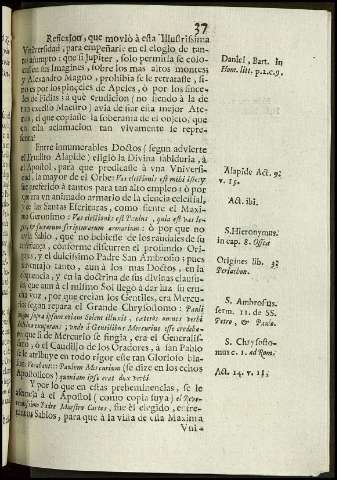 37
Reflexion, que moviò à esta Illustrissima
Vniversidad, para empeñarse en el elogio de tan-
to assumpto: que si Jupiter, solo permitia se colo-
assen sus Imagines, sobre los mas altos montes;
y Alexandro Magno, prohibia se le retratasse, si-
no es por los pinçeles de Apeles, ò por los sinze-
les de Fidias: à què erudicion (no siendo à la de
tan excelso Maestro) avia de fiar esta mejor Ate-
nas, el que copiasse la soberania de el objeto, que
en esta aclamacion tan vivamente se repre-
senta?
Entre innumerables Doctos (segun advierte
el Erudito Alapide) eligiò la Divina sabiduria, à
el Apostol, para que predicasse à vna Vniversi-
dad, la mayor de el Orbe: Vas electionis est mihi iste: y
fue preferido à tantos para tan alto empleo: ò por
que era vn animado armario de ciencia celestial,
y de las Santas Escrituras, como siente el Maxi-
mo Geronimo: Vas electionis est Paulus, quia est vas le-
gis, & sacrarum scripturarum armarium: ò por que no
huvo Sabio, que no bebiesse de los raudales de su
enseñança, conforme discurren el profundo Ori-
genes, y el dulcissimo Padre San Ambrosio; pues
aventajò tanto, aun à los mas Doctos, en la
eloquencia, y doctrina de sus divinas clausulas,
que aun à el mismo Sol llegò à dar luz su eru-
dita voz, por que creìan los Gentiles, era Mercu-
rio segun repara el Grande Chrysostomo: Pauli
lingua supra ipsum etiam Solem illuxit, cæteris omnes verbi
Doctrina superans; unde à Gentilibus Mercurius esse credeba-
tur; que si de Mercurio se fingia, era el Generalis-
simo, ò el Caudillo de los Oradores, à san Pablo
se le atribuye en todo rigor este tan Glorioso bla-
son. Vocabant Paulum Mercurium (se dize en los echos
Apostolicos) quoniam ipse erat dux verbi.
Y por lo que en estas preheminencias, se le
semeja à el Apostol (como copia suya) el Reve-
rendissimo Padre Maestro Cortes, fue èl elegido, entre
tantos Sabios, para que à la vista de esta Maxima
Vni-
Daniel, Bart. In
Hom. litt. p.1.c.9.
Alapide Act. 9.
v. 15.
Act. ibi.
S. Hieronymus.
in cap. 8. Ossia
Origines lib. 3.
Periachon.
S. Ambrosius.
serm. 11. de SS.
Petro, & Paulo.
S. Chrysosto-
mus c. 1. ad Rom.
Act. 14. v. 11.